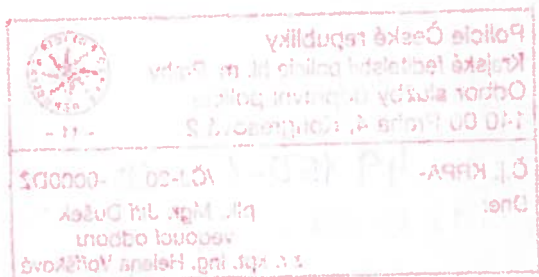 Policie České republiky
Krajské ředitelství policie hl. m. Prahy
Odbor služby dopravní policie
140 00 Praha 4, Kongresová 2
- 11 -
Č.j. KRPA- /ČJ-20 -0000DZ
Dne:
plk. Mgr. Jiří Dušek
vedoucí odboru
z. r. kpt. Ing. Helena Voříšková